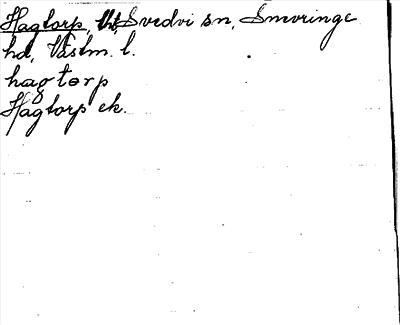 Hagtorp, Svedvi sn, Snevringe
hd, Västm. l.
hagtorp
Hagtorp ek.